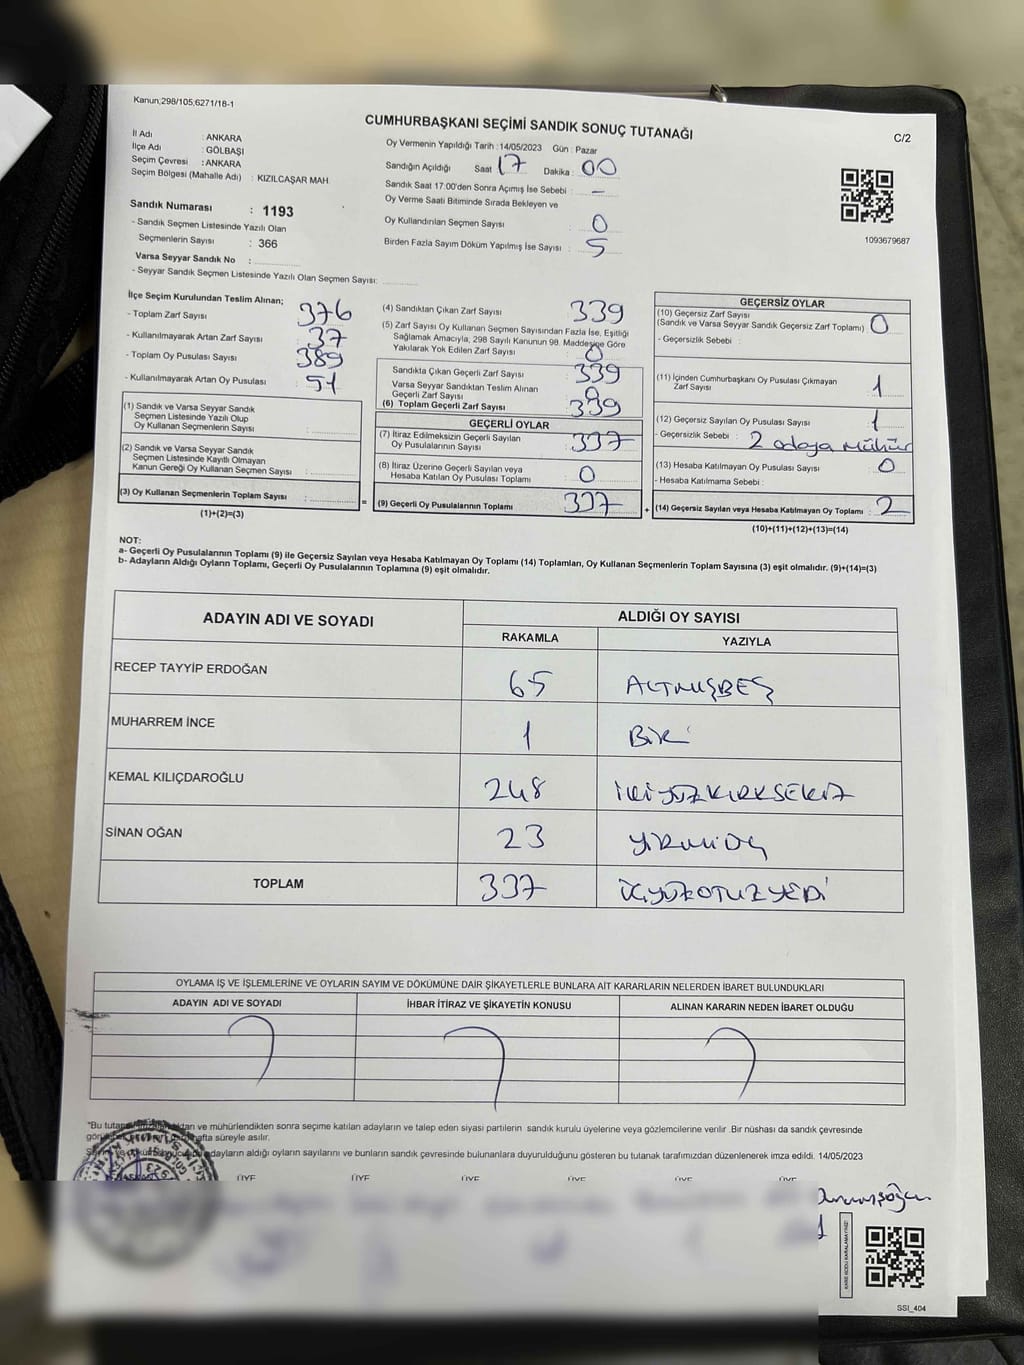 Kanun;298/105,6271/18-1
CUMHURBAŞKANI SEÇİMİ SANDIK SONUÇ TUTANAĞI
C/2
İl Adı : ANKARA
İlçe Adı : GÖLBAŞI
Seçim Çevresi : ANKARA
Seçim Bölgesi (Mahalle Adı) : KIZILCAŞAR MAH.
Sandık Numarası : 1193
- Sandık Seçmen Listesinde Yazılı Olan
Seçmenlerin Sayısı : 366
Varsa Seyyar Sandık No :
- Seyyar Sandık Seçmen Listesinde Yazılı Olan Seçmen Sayısı:
Oy Vermenin Yapıldığı Tarih : 14/05/2023 Gün : Pazar
Sandığın Açıldığı Saat 17 Dakika : 00
Sandık Saat 17:00'den Sonra Açımış İse Sebebi : -
Oy Verme Saati Bitiminde Sırada Bekleyen ve
Oy Kullandırılan Seçmen Sayısı : 0
Birden Fazla Sayım Döküm Yapılmış İse Sayısı : 5
1093679687
İlçe Seçim Kurulundan Teslim Alınan;
- Toplam Zarf Sayısı : 376
- Kullanılmayarak Artan Zarf Sayısı : 37
- Toplam Oy Pusulası Sayısı : 389
- Kullanılmayarak Artan Oy Pusulası : 51
(1) Sandık ve Varsa Seyyar Sandık
Seçmen Listesinde Yazılı Olup
Oy Kullanan Seçmenlerin Sayısı :
(2) Sandık ve Varsa Seyyar Sandık
Seçmen Listesinde Kayıtlı Olmayan
Kanun Gereği Oy Kullanan Seçmen Sayısı :
(3) Oy Kullanan Seçmenlerin Toplam Sayısı :
(1)+(2)=(3)
(4) Sandıktan Çıkan Zarf Sayısı : 339
(5) Zarf Sayısı Oy Kullanan Seçmen Sayısından Fazla İse, Eşitliği
Sağlamak Amacıyla; 298 Sayılı Kanunun 98. Maddesine Göre
Yakılarak Yok Edilen Zarf Sayısı : 0
Sandıkta Çıkan Geçerli Zarf Sayısı : 339
Varsa Seyyar Sandıktan Teslim Alınan
Geçerli Zarf Sayısı : 0
(6) Toplam Geçerli Zarf Sayısı : 339
GEÇERLİ OYLAR
(7) İtiraz Edilmeksizin Geçerli Sayılan
Oy Pusulalarının Sayısı : 337
(8) İtiraz Üzerine Geçerli Sayılan veya
Hesaba Katılan Oy Pusulası Toplamı : 0
(9) Geçerli Oy Pusulalarının Toplamı : 337
GEÇERSİZ OYLAR
(10) Geçersiz Zarf Sayısı
(Sandık ve Varsa Seyyar Sandık Geçersiz Zarf Toplamı) : 0
- Geçersizlik Sebebi :
(11) İçinden Cumhurbaşkanı Oy Pusulası Çıkmayan
Zarf Sayısı : 1
(12) Geçersiz Sayılan Oy Pusulası Sayısı : 1
- Geçersizlik Sebebi : 2 adaya mühür
(13) Hesaba Katılmayan Oy Pusulası Sayısı : 0
- Hesaba Katılmama Sebebi :
(14) Geçersiz Sayılan veya Hesaba Katılmayan Oy Toplamı : 2
(10)+(11)+(12)+(13)=(14)
NOT:
a- Geçerli Oy Pusulalarının Toplamı (9) ile Geçersiz Sayılan veya Hesaba Katılmayan Oy Toplamı (14) Toplamları, Oy Kullanan Seçmenlerin Toplam Sayısına (3) eşit olmalıdır. (9)+(14)=(3)
b- Adayların Aldığı Oyların Toplamı, Geçerli Oy Pusulalarının Toplamına (9) eşit olmalıdır.
ADAYIN ADI VE SOYADI ALDIĞI OY SAYISI
RAKAMLA YAZIYLA
RECEP TAYYİP ERDOĞAN 65 ALTMIŞBEŞ
MUHARREM İNCE 1 BİR
KEMAL KILIÇDAROĞLU 248 İKİYÜZKIRKSEKİZ
SİNAN OĞAN 23 YİRMİÜÇ
TOPLAM 337 ÜÇYÜZOTUZYEDİ
OYLAMA İŞ VE İŞLEMLERİNE VE OYLARIN SAYIM VE DÖKÜMÜNE DAİR ŞİKAYETLERLE BUNLARA AİT KARARLARIN NELERDEN İBARET BULUNDUKLARI
ADAYIN ADI VE SOYADI İHBAR İTİRAZ VE ŞİKAYETİN KONUSU ALINAN KARARIN NEDEN İBARET OLDUĞU
ve mühürlendikten sonra seçime katılan adayların ve talep eden siyasi partilerin sandık kurulu üyelerine veya gözlemcilerine verilir .Bir nüshası da sandık çevresinde
hafta süreyle asılır.
adayların aldığı oyların sayılarını ve bunların sandık çevresinde bulunanlara duyurulduğunu gösteren bu tutanak tarafımızdan düzenlenerek imza edildi. 14/05/2023
ÜYE ÜYE ÜYE ÜYE ÜYE ÜYE
SSI_404